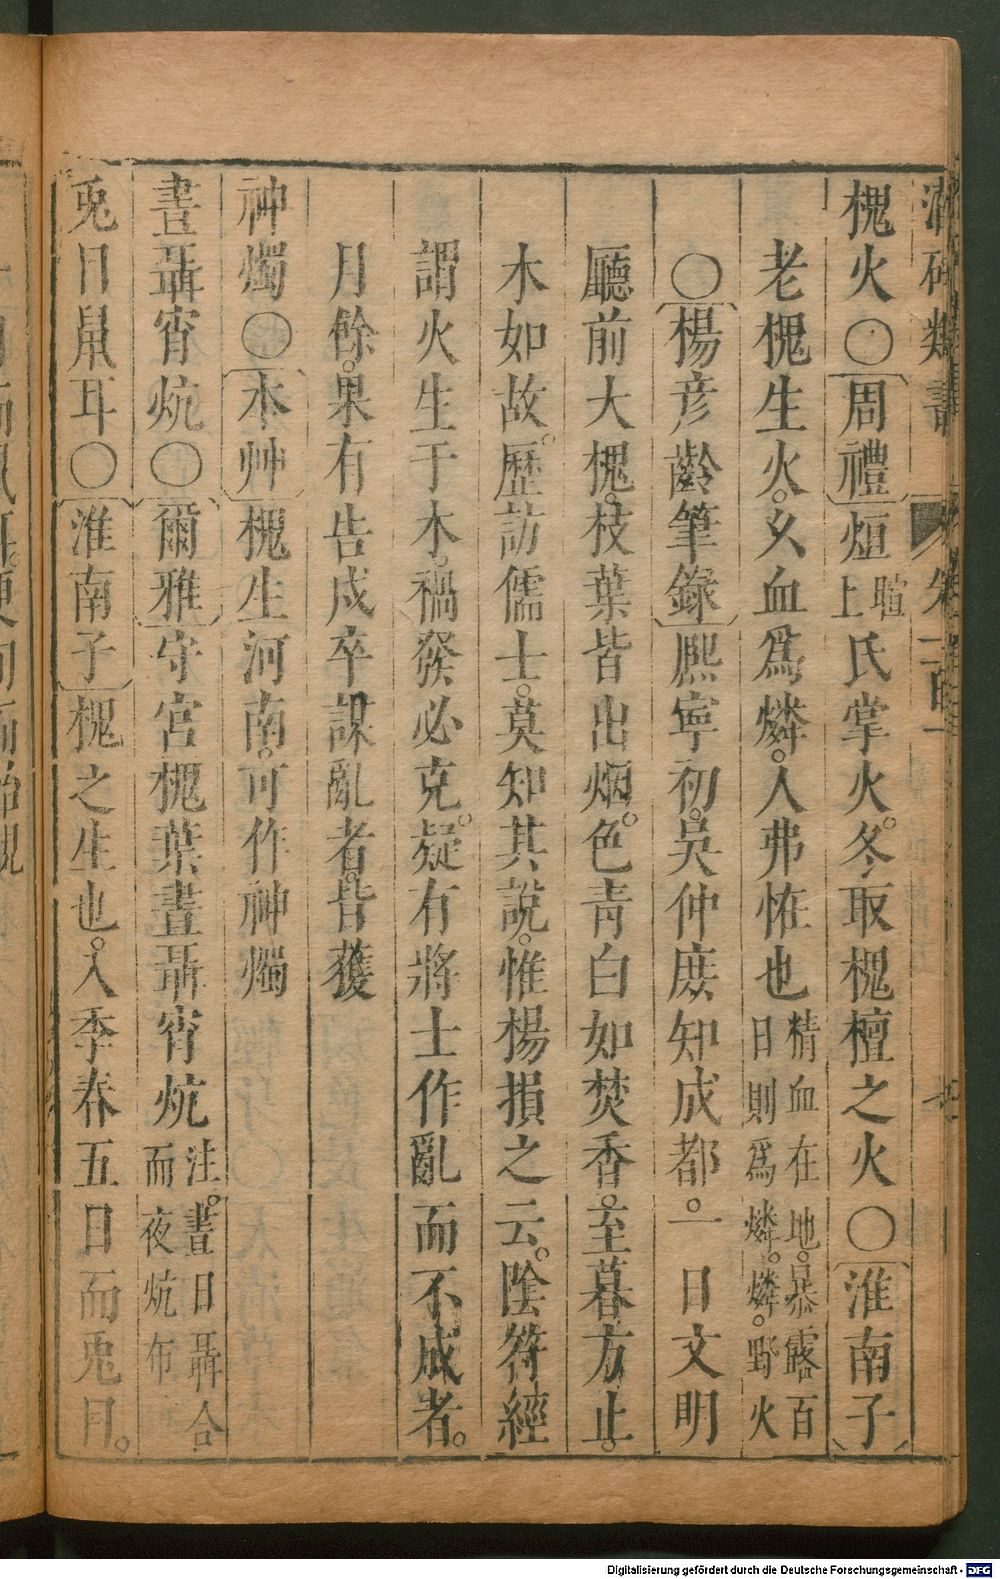 潛確類書 卷一百一
槐火〇周禮烜上暄氏掌火。冬取槐檀之火〇淮南子
老槐生火。久血爲燐。人弗恠也精血在地。暴露百日則爲燐。燐。野火
〇楊彦齡筆錄熈寜初。吳仲庶知成都。一日文明
廳前大槐。枝葉皆出烟。色青白如焚香。至暮方止。
木如故。歴訪儒士。莫知其說。惟楊損之云。陰符經
謂火生于木。禍發必克。疑有將士作亂而不成者。
月餘。果有告戍卒謀亂者。皆獲
神燭〇本艸槐生河南。可作神燭
晝聶宵炕〇爾雅守宮槐葉晝聶宵炕注。晝日聶合而夜炕布
兎目鼠耳〇淮南子槐之生也。入季春五日而兎目。
Digitalisierung gefördert durch die Deutsche Forschungsgemeinschaft - DFG